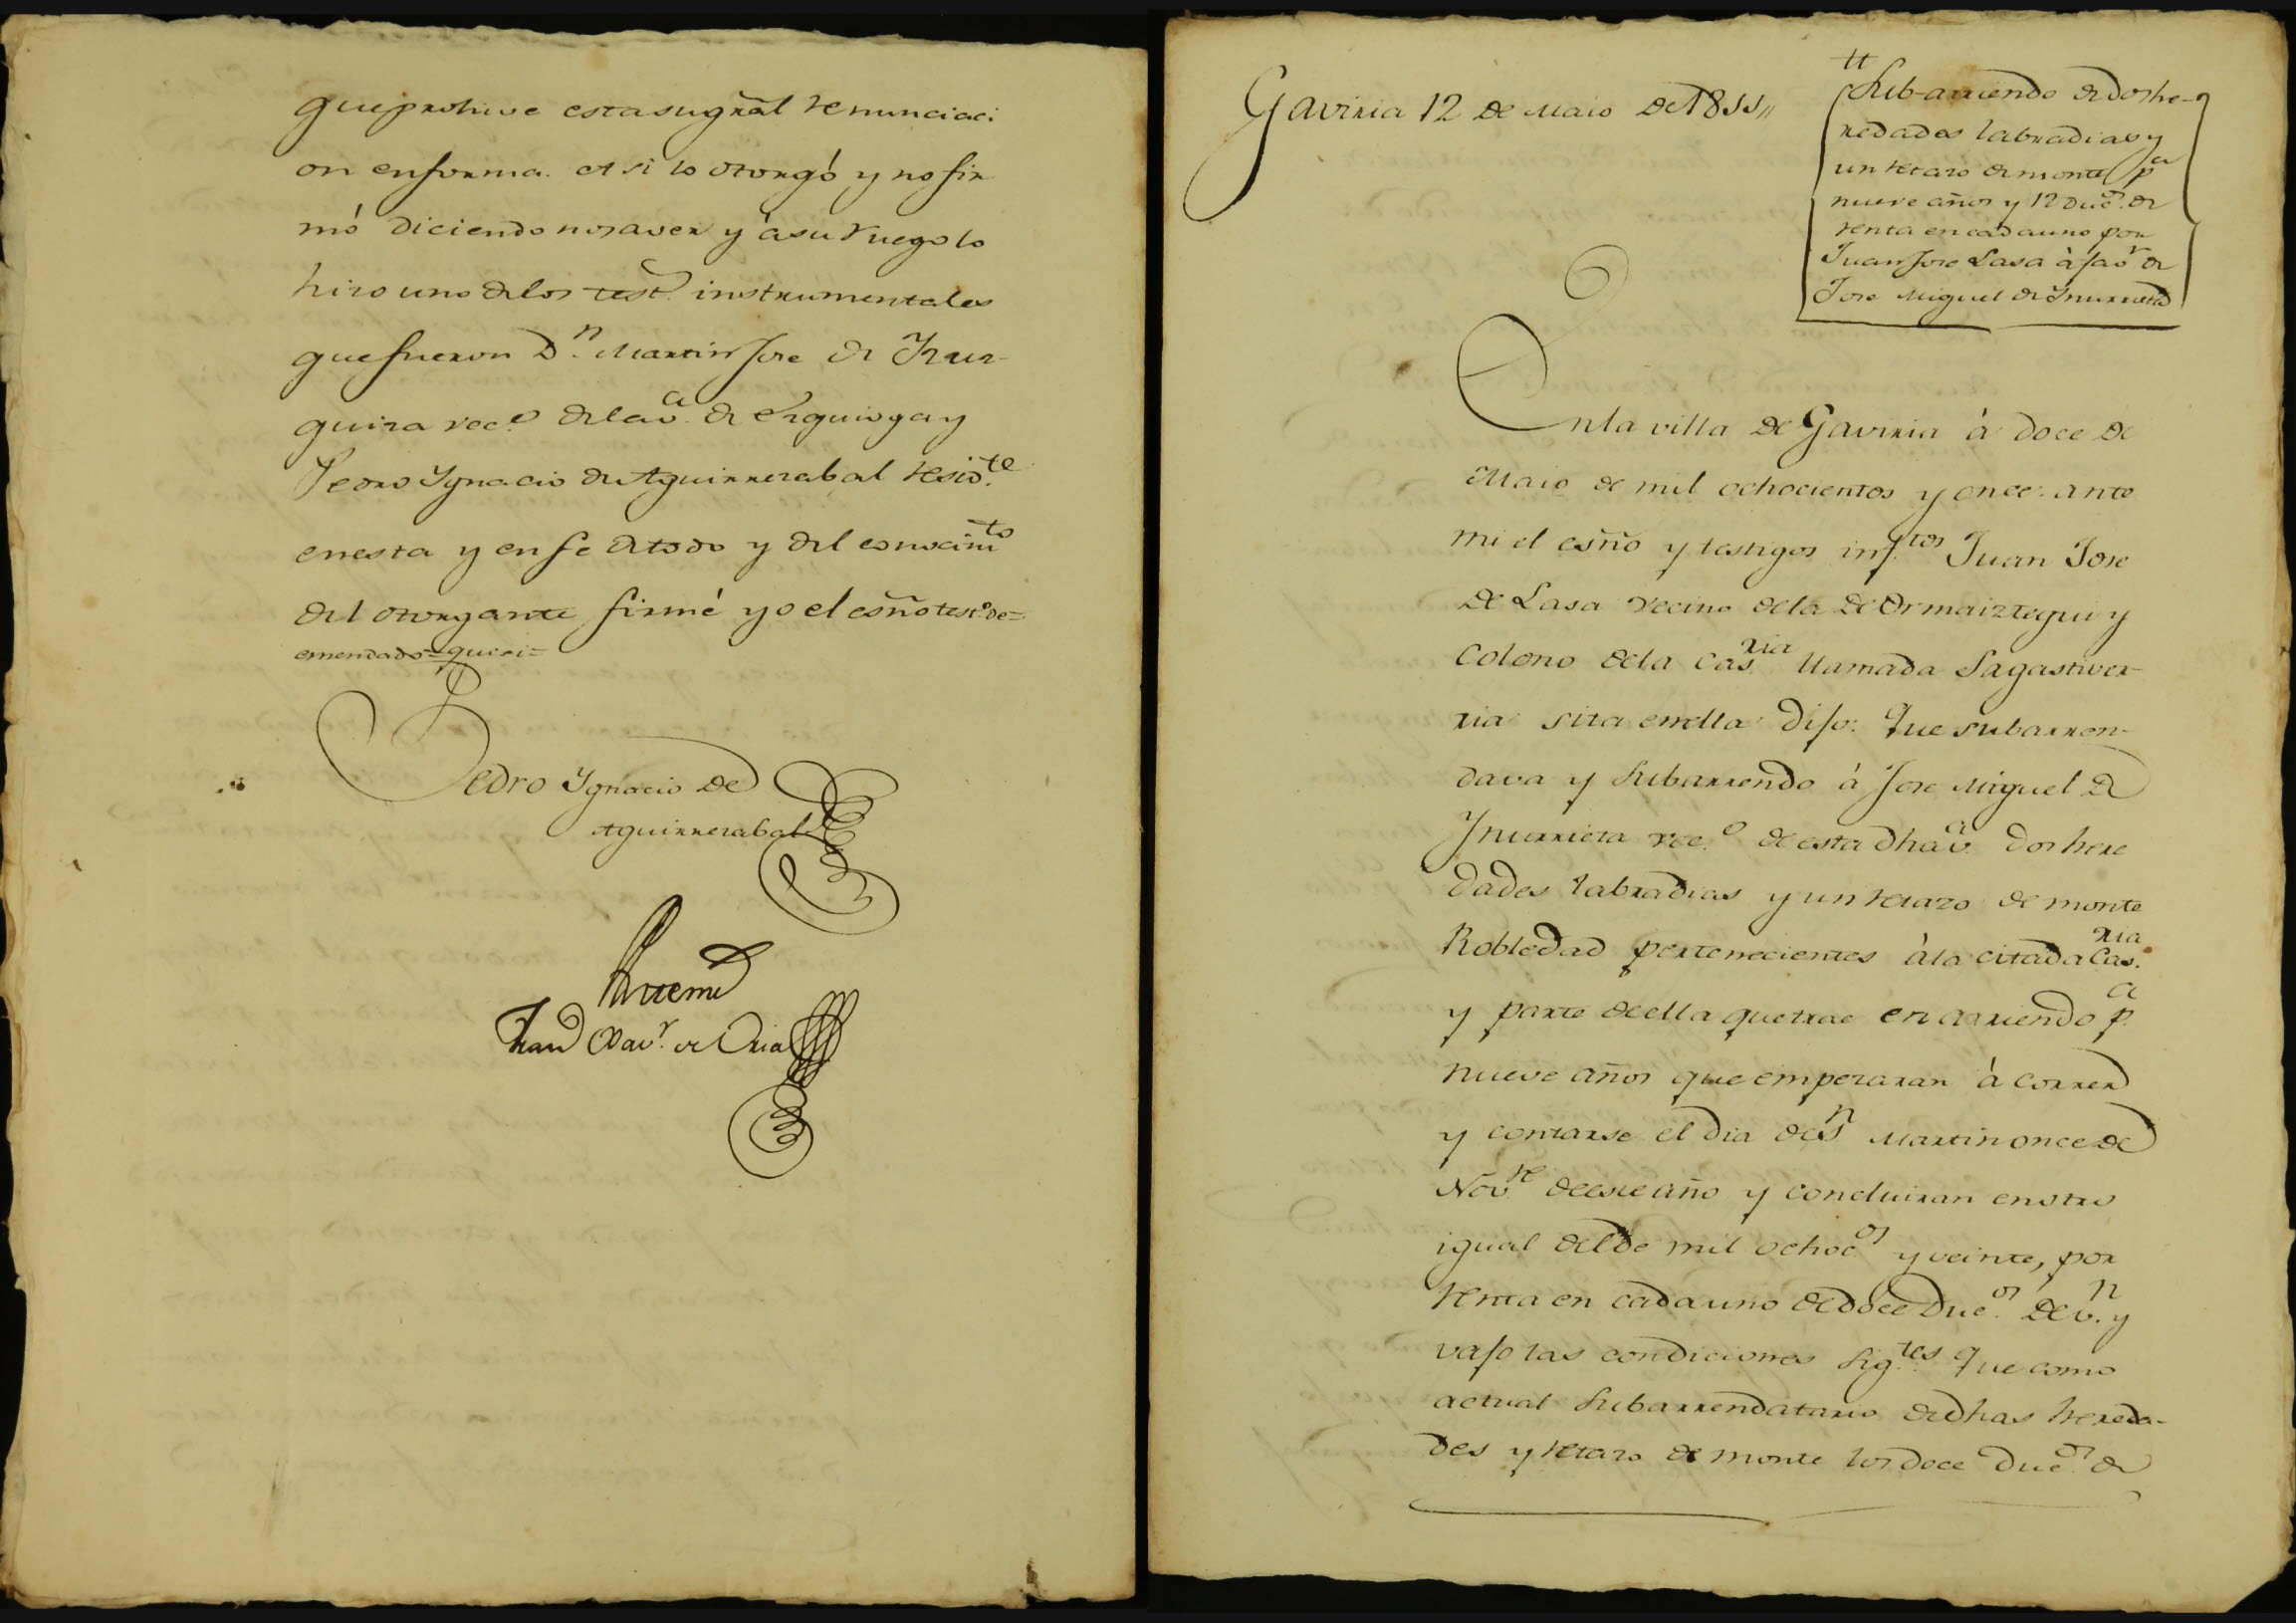 que prohive esta su gñral renunciaci
on en forma. asi lo otorgó y no fir
mó diciendo no saver y à su ruego lo
hizo uno de los test.s instrumentales
que fueron D.n Martin Jose de Izur-
guiza vec.o de la v.a de Ezquioga y
Pedro Ygnacio de Aguirrezabal resid.te
en esta y en fe de todo y del conocim.to
del otorgante firmé yo el esño test.do de=
emendado=
Pedro Ygnacio de
Aguirrezabal
Ante mi
Fran.co Xav.r de Oria
Gaviria 12 de Maio de 1811,,
tt
Sub-arriendo de dos he-
redades labradias y
un retazo de monte p.a
nueve años y 12 duc.os de
renta en cada uno por
Juan Jose Lasa à fav.r de
Jose Miguel de Ynurrieta
En la villa de Gaviria à doce de
Maio de mil ochocientos y once: ante
mi el esño y testigos inf.tos Juan Jose
de Lasa vecino de la de Ormaiztegui y
colono de la cas.ria llamada Sagastiver-
ria sita en ella: Dijo: Que subarren-
dava y subarrendo à Jose Miguel de
Ynurrieta vec.o de esta dha v.a dos here
dades labradias y un retazo de monte
Robledad pertenecientes à la citada Cas.ria
y parte de ella que trae en arriendo p.a
nueve años que empezaran à correr
y contarse el dia de S.n Martin once de
Nov.re de este año y concluiran en otro
igual del de mil ochoc.os y veinte, por
renta en cada uno de doce Duc.os de v.n y
vajo las condiciones sig.tes Que como
actual subarrendatario de dhas hereda-
des y retazo de monte los doce duc.os de